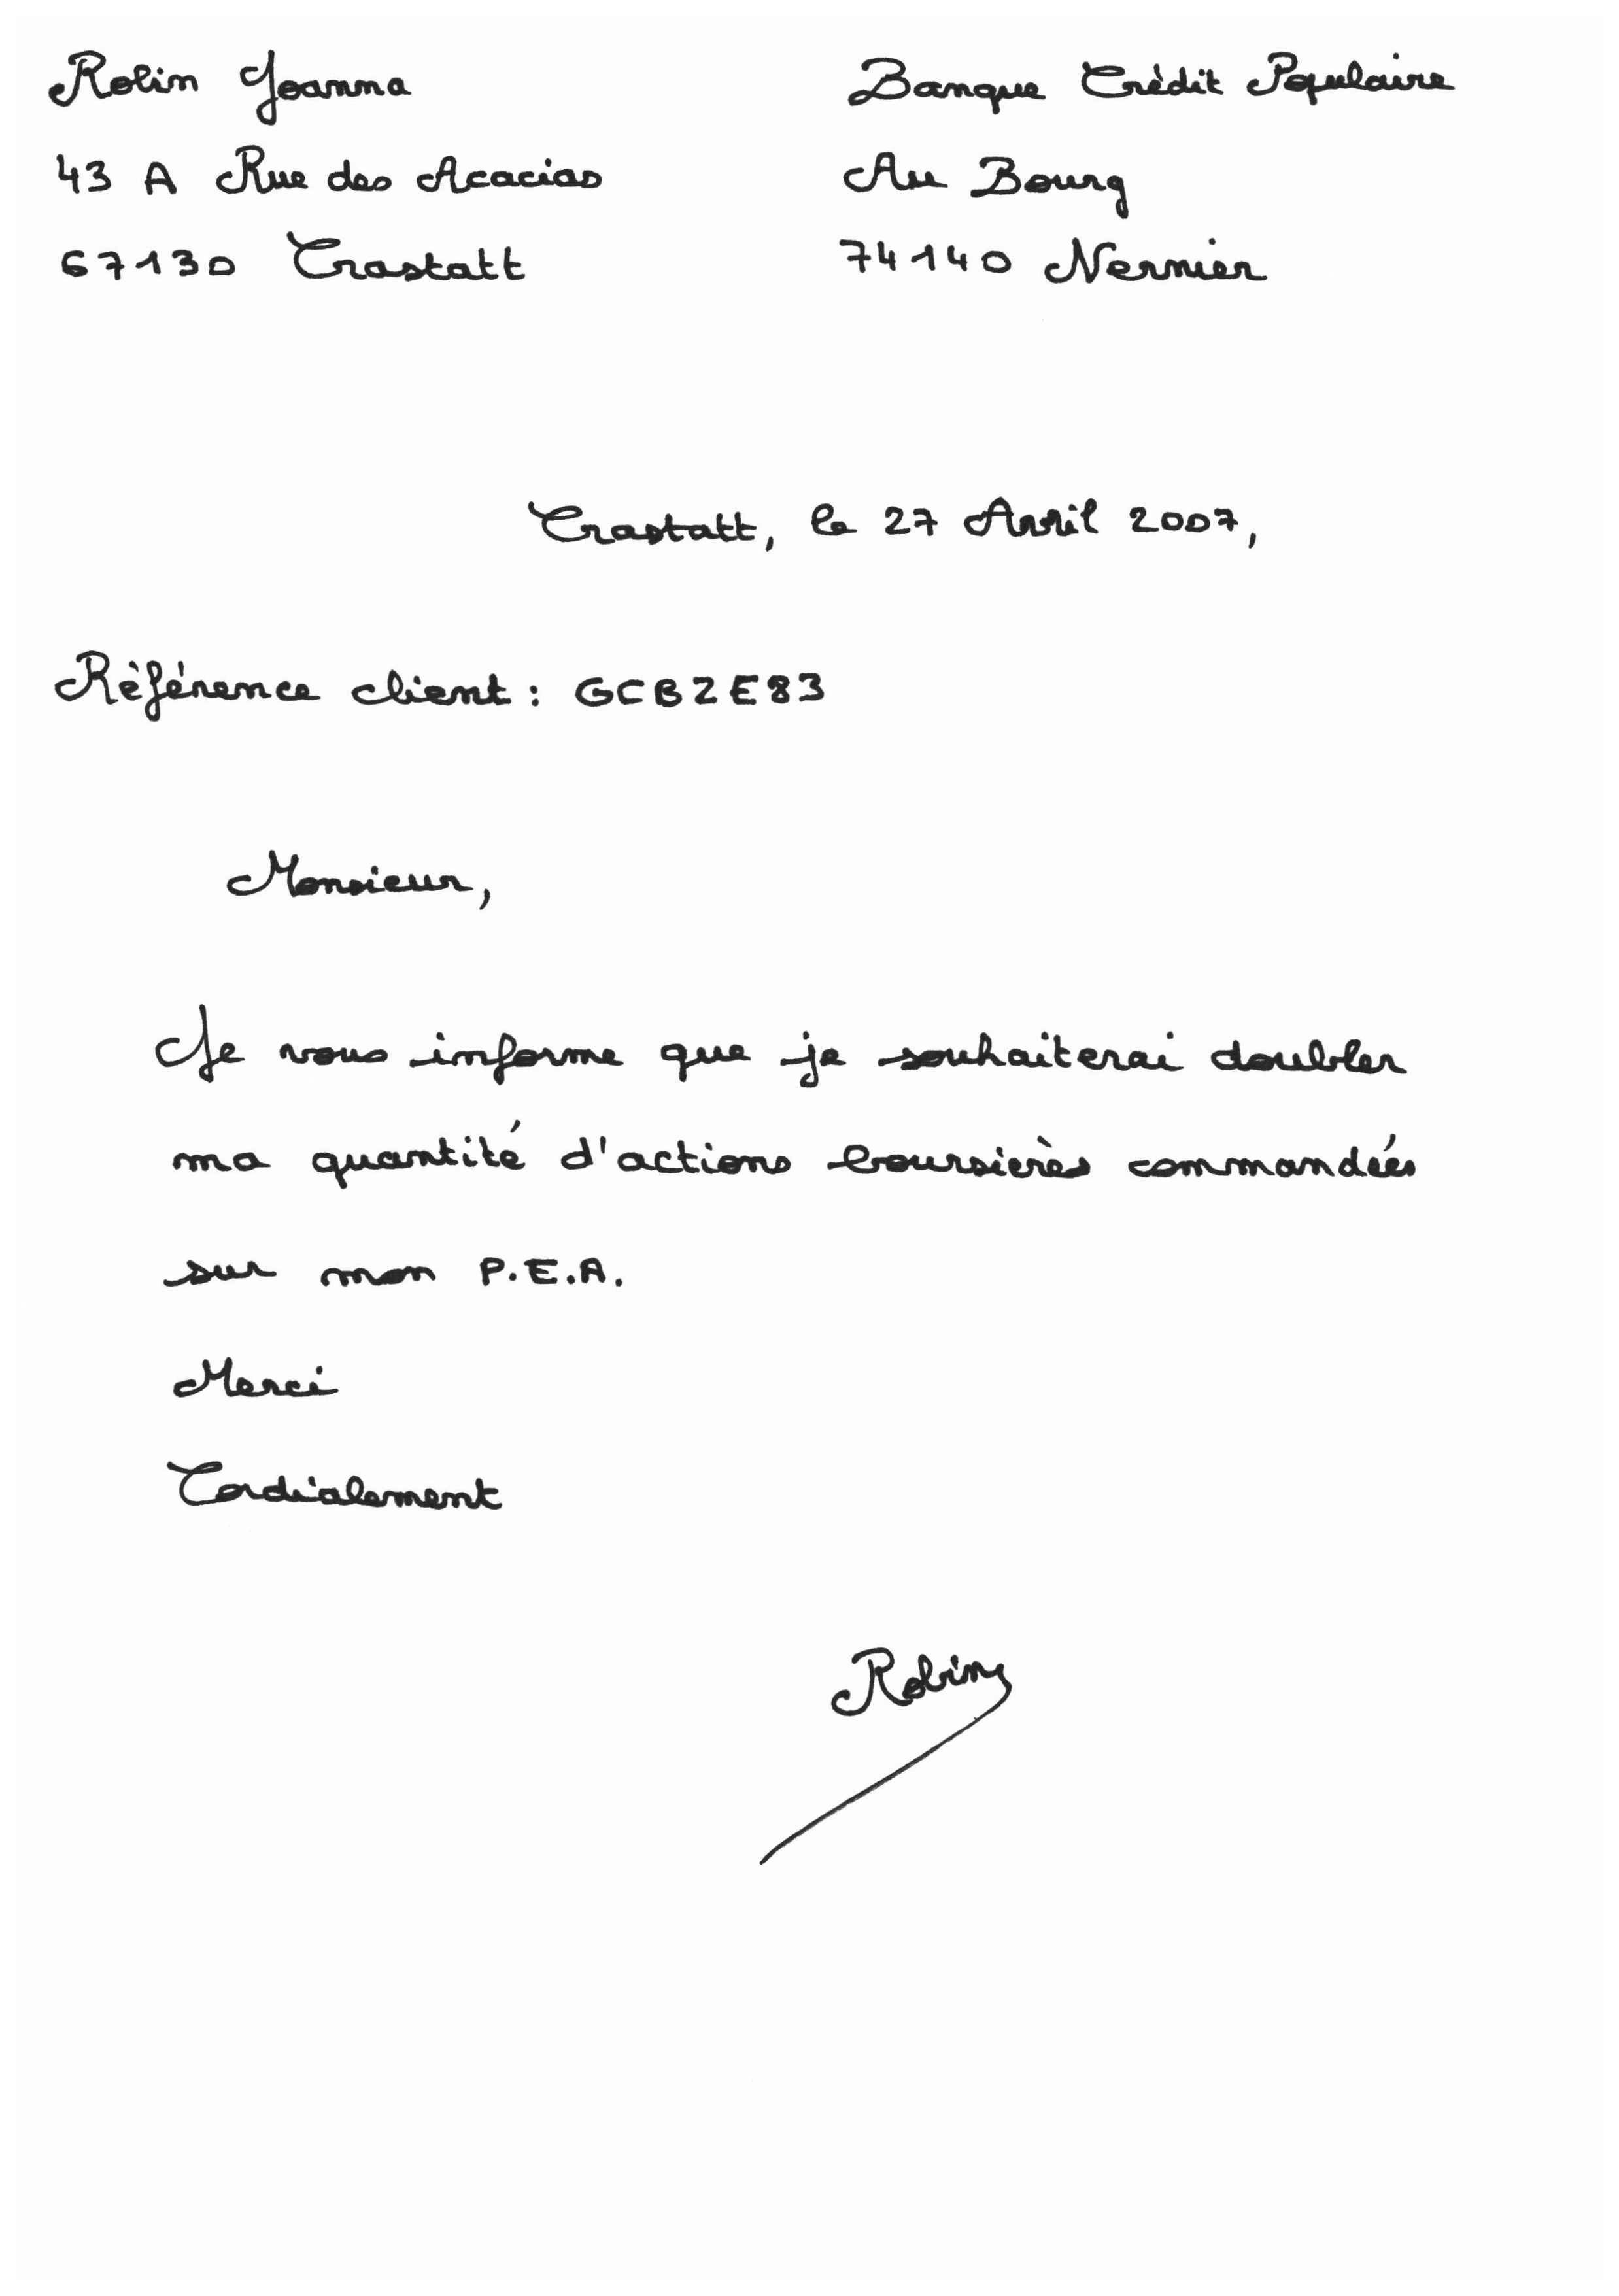 Robin Joanna
43 A Rue des Acacias
67130 Crastatt
Banque Crédit Populaire
Au Bourg
74140 Nernier
Crastatt, le 27 Avril 2007,
Référence client : GCBZE83
Monsieur,
Je vous informe que je souhaiterai doubler
ma quantité d'actions boursières commandées
sur mon P.E.A.
Merci
Cordialement
Robin